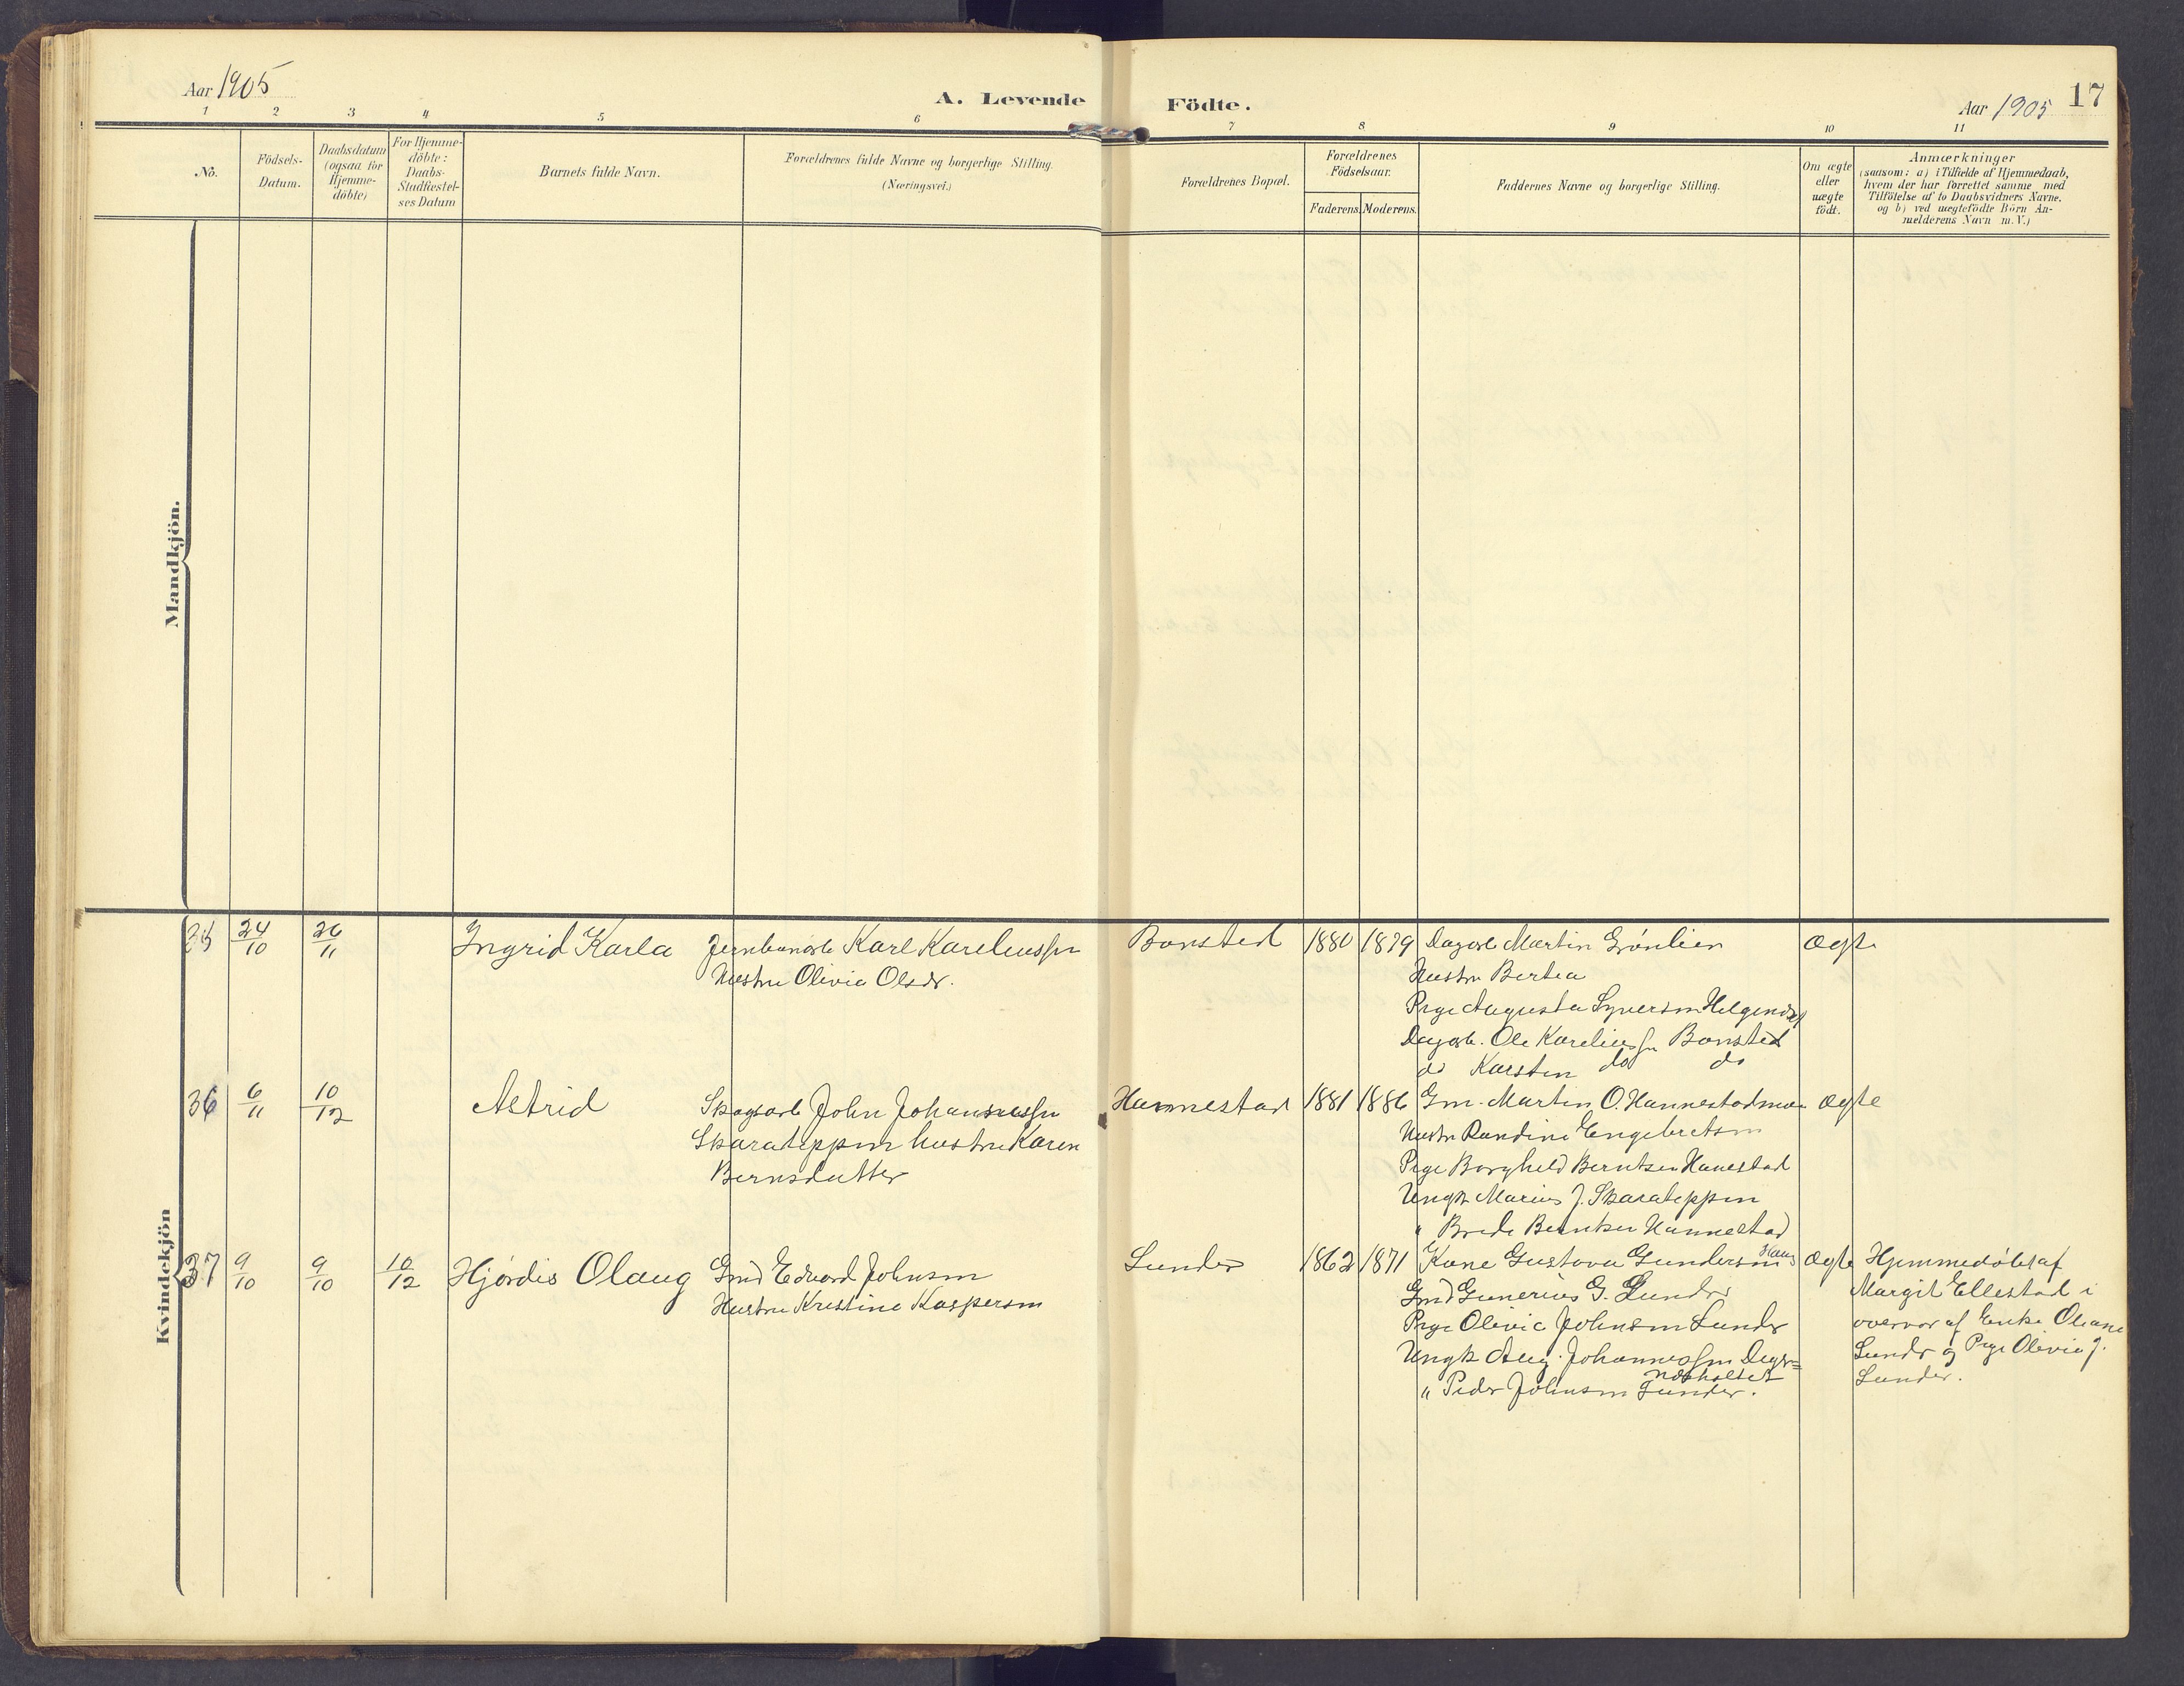 Aar 1905
A. Levende Födte.
Aar 1905 17
1 2 3 4 5 6 7 8 9 10 11
No.
Födsels-
Datum.
Daabsdatum
(ogsaa for
Hjemme-
döbte)
For Hjemme-
döbte:
Daabs-
Stadfæstel-
ses Datum
Barnets fulde Navn.
Forældrenes fulde Navne og borgerlige Stilling.
(Næringsvei.)
Forældrenes Bopæl.
Forældrenes
Födselsaar.
Faderens. Moderens.
Faddernes Navne og borgerlige Stilling.
Om ægte
eller
uægte
födt.
Anmærkninger
(saasom: a) i Tilfælde af Hjemmedaab,
hvem der har forrettet samme med
Tilföielse af to Daabsvidners Navne.
og b) ved uægtefödte Börn An-
melderens Navn m. V.)
Mandkjön.
Kvindekjön
35 24/10 26/11 Ingrid Karla
Jernbanarb Karl Kareliussen
Hustru Olivia Olsdr.
Bonsted 1880 1879
Dagarb Martin Grønlien
Hustru Bertea
Pige Augusta Syversen
Dagarb. Ole Kareliussen Bonsted
do Karsten do do
Ægte
36 6/11 10/12 Astrid
Skogsarb John Johannessen
Skarateppen hustru Karen
Berntsdatter
Hannestad 1881 1886
Gm. Martin O. Hannestadmoen
Hustru Randine Engebretsen
Pige Borghild Berntsen Hanestad
Ungk. Marius J. Skarateppen
" Brede Berntsen Hannestad
Ægte
37 9/10 9/10 10/12 Hjørdis Olaug
Gmd Edvard Johnsen
Hustru Kristine Kaspersen
Sunder 1862 1871
Kone Gustava Gundersen
Gmd Gunerius G. Sunder
Pige Olivia Johnsen Sunder
Ungk Aug. Johannessen Deger=
næsholtet
" Peder Johnsen Sunder.
Ægte
Hjemmedøbt af
Margit Ellestad i
overvær af Enke Oliane
Sunder og Pige Olivia J.
Sunder.